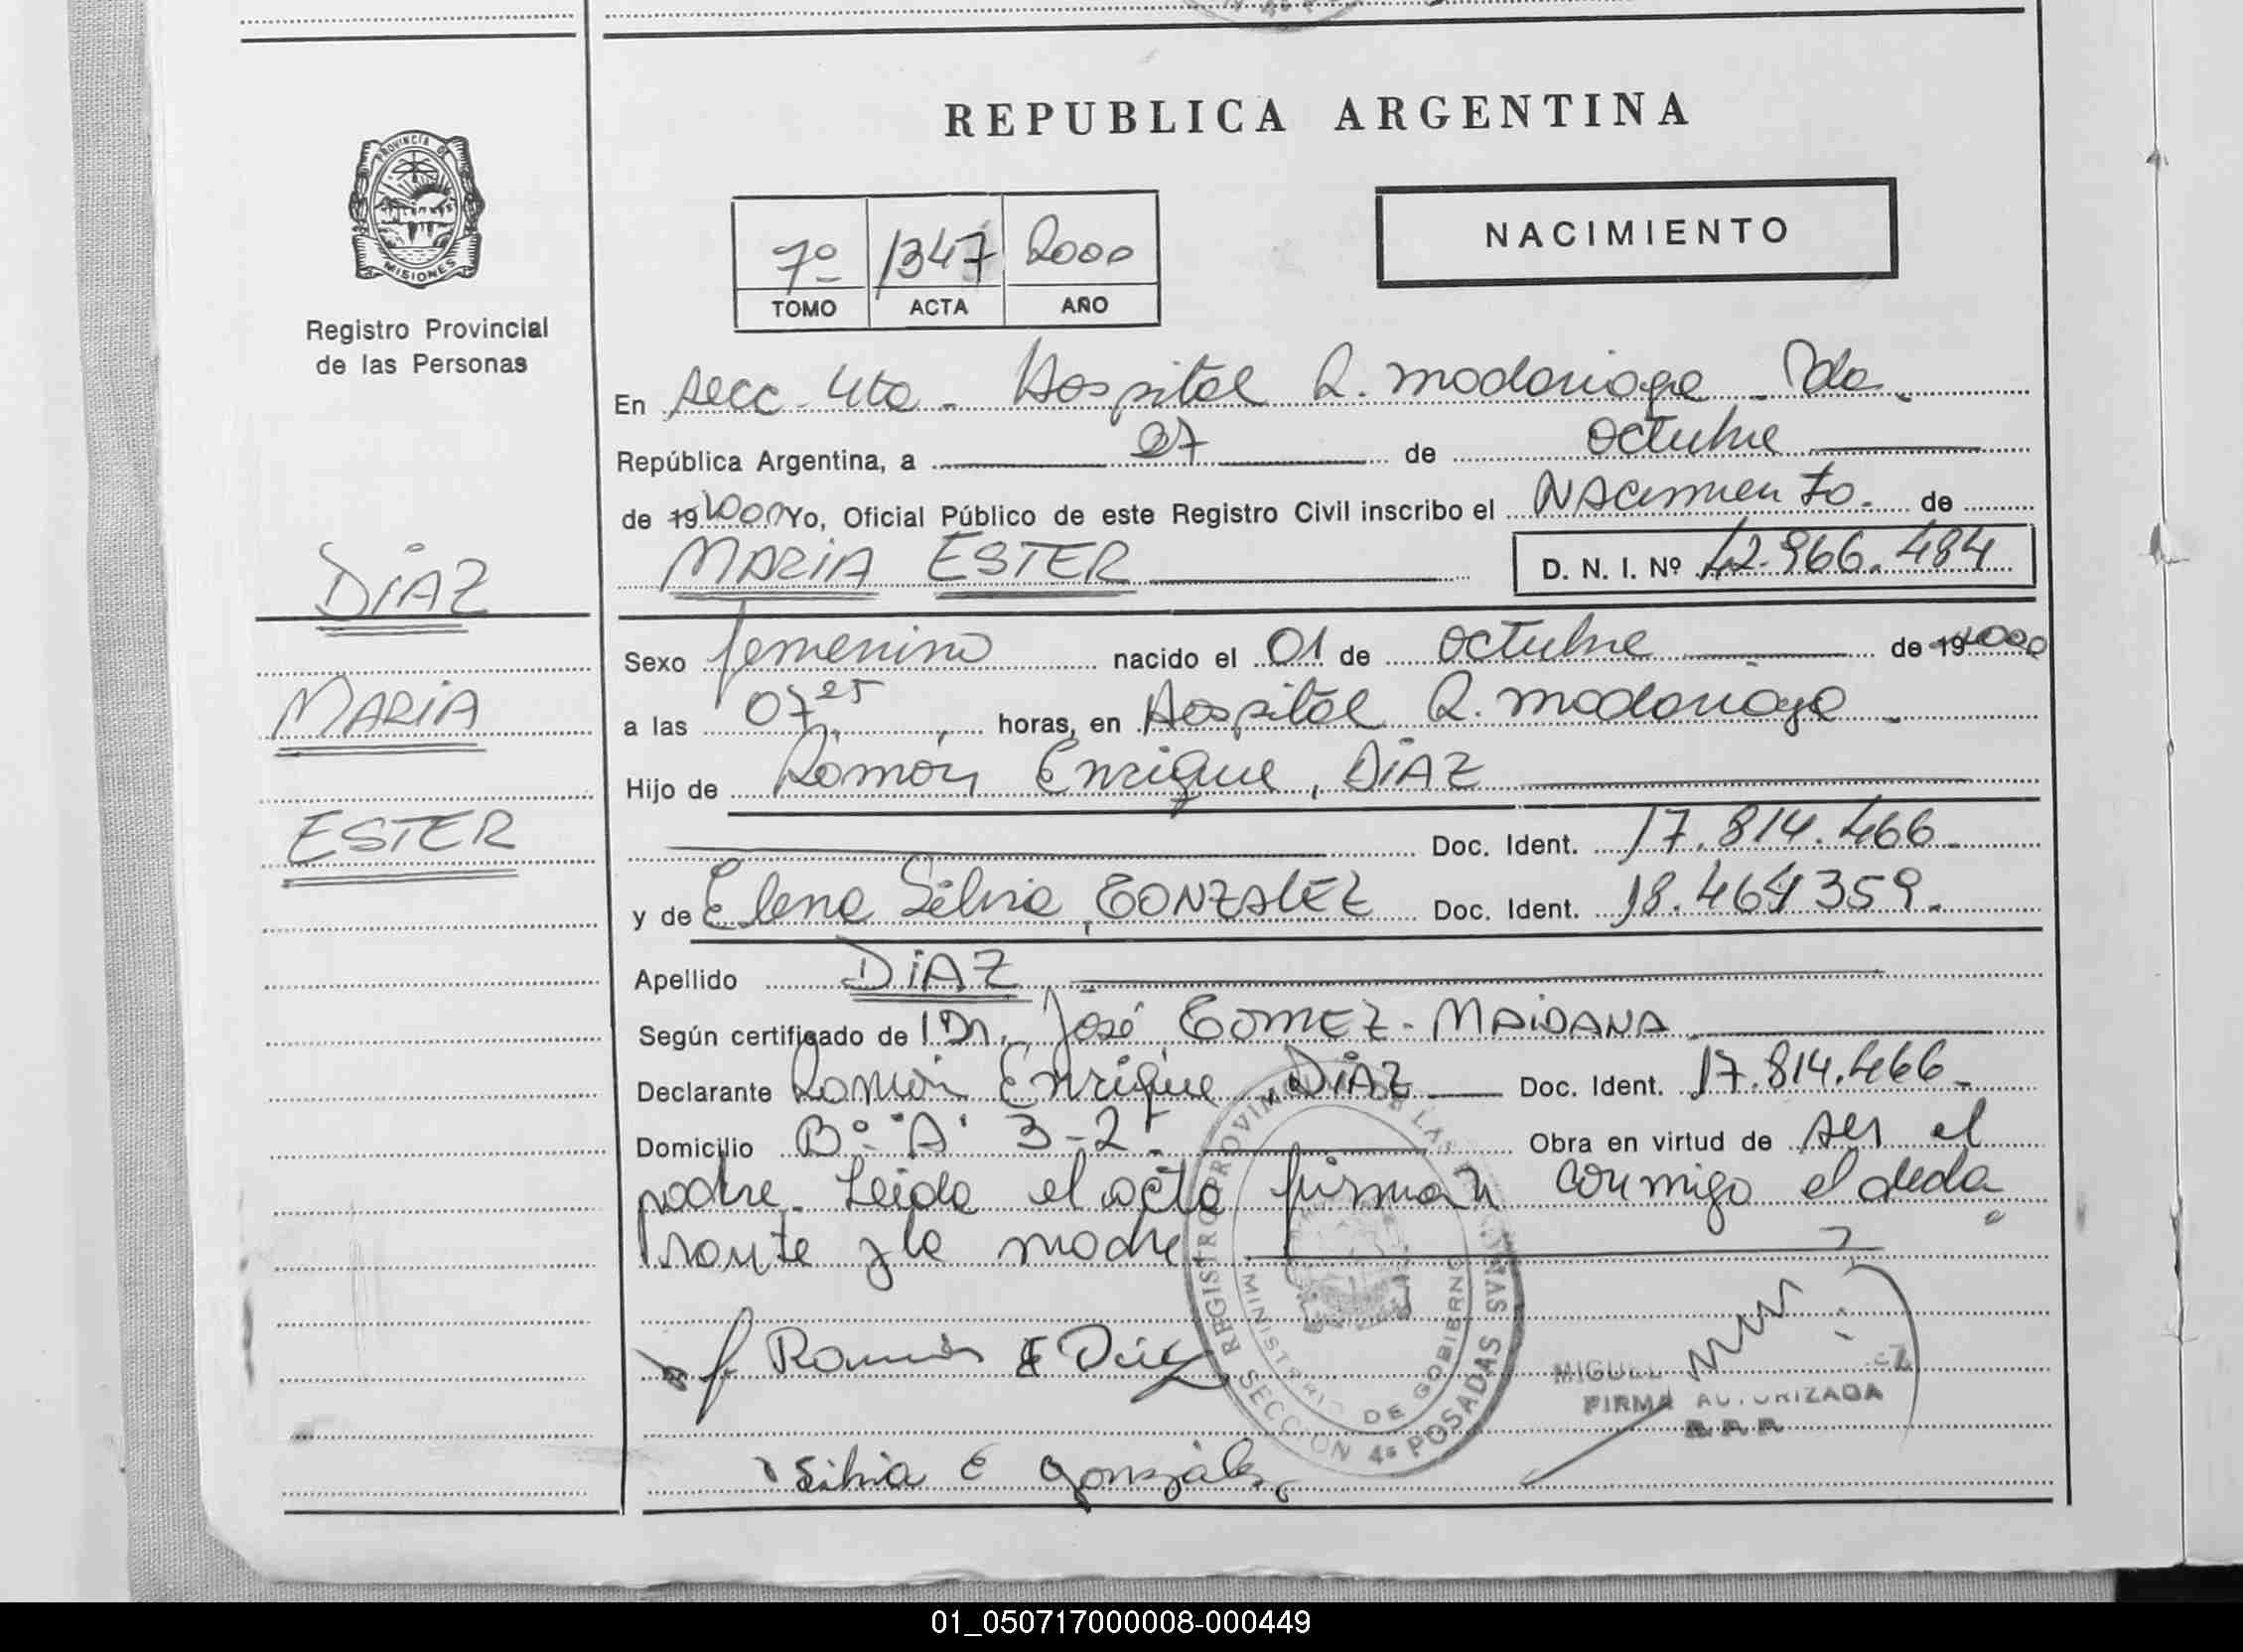 REPUBLICA ARGENTINA
PROVINCIA DE
MISIONES
Registro Provincial
de las Personas
7º 1347 2000
TOMO ACTA AÑO
NACIMIENTO
En Secc. 4ta - Hospital R. Madariaga - Pda.
República Argentina, a 27 de octubre
de 19 2000 Yo, Oficial Público de este Registro Civil inscribo el NAcimiento. de
MARIA ESTER D. N. I. Nº 42.966.484
DIAZ
MARIA
ESTER
Sexo femenino nacido el 01 de octubre de 19 2000
a las 07 25 horas, en Hospital R. Madariaga -
Hijo de Ramón Enrique, DIAZ
Doc. Ident. 17.814.466.
y de Elena Silvia, GONZALEZ Doc. Ident. 18.464359.
Apellido DIAZ
Según certificado de Dr. José GOMEZ - MAIDANA
Declarante Ramón Enrique DIAZ Doc. Ident. 17.814.466.
Domicilio Bº "A" 3-2 Obra en virtud de ser el
padre. Leida el acta firman conmigo el decla
rante y la madre
REGISTRO PROVINCIAL DE LAS PERSONAS
MINISTERIO DE GOBIERNO
SECCION 4ª POSADAS
Ramón E Díaz
MIGUEL EZ
FIRMA AUTORIZADA
R.P.P.
Silvia E González
01_050717000008-000449